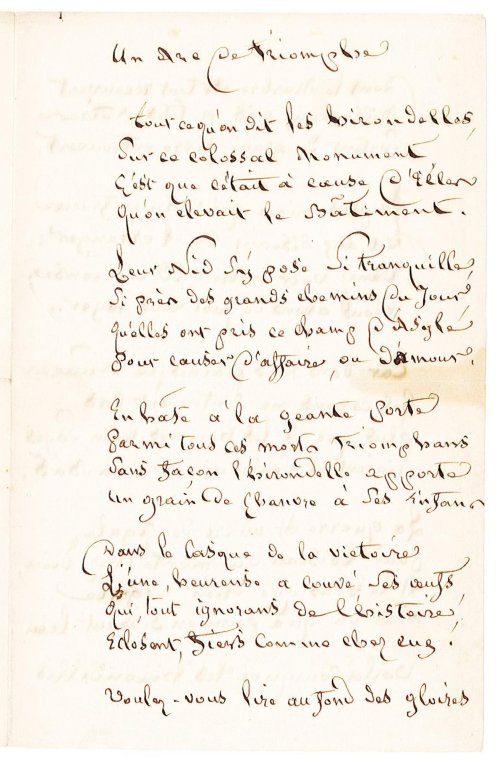 Un Arc de triomphe
tout ce qu'on dit les hirondelles,
Sur ce colossal Monument
C'est que c'était à cause d'Elles
Qu'on elevait le Bâtiment.
Leur Nid s'y pose si tranquille,
Si près des grands chemins du Jour,
Qu'elles ont pris ce champ d'Asyle
pour causer d'affaire, ou d'amour.
En hâte à la geante porte
parmi tous ces morts triomphans
Sans façon l'hirondelle apporte
un grain de Chanvre à ses Enfans
Dans le Casque de la victoire
L'une, heureuse a couvé ses œufs
Qui, tout ignorans de l'histoire,
Eclosent, fiers comme chez eux.
Voulez-vous lire au fond des gloires